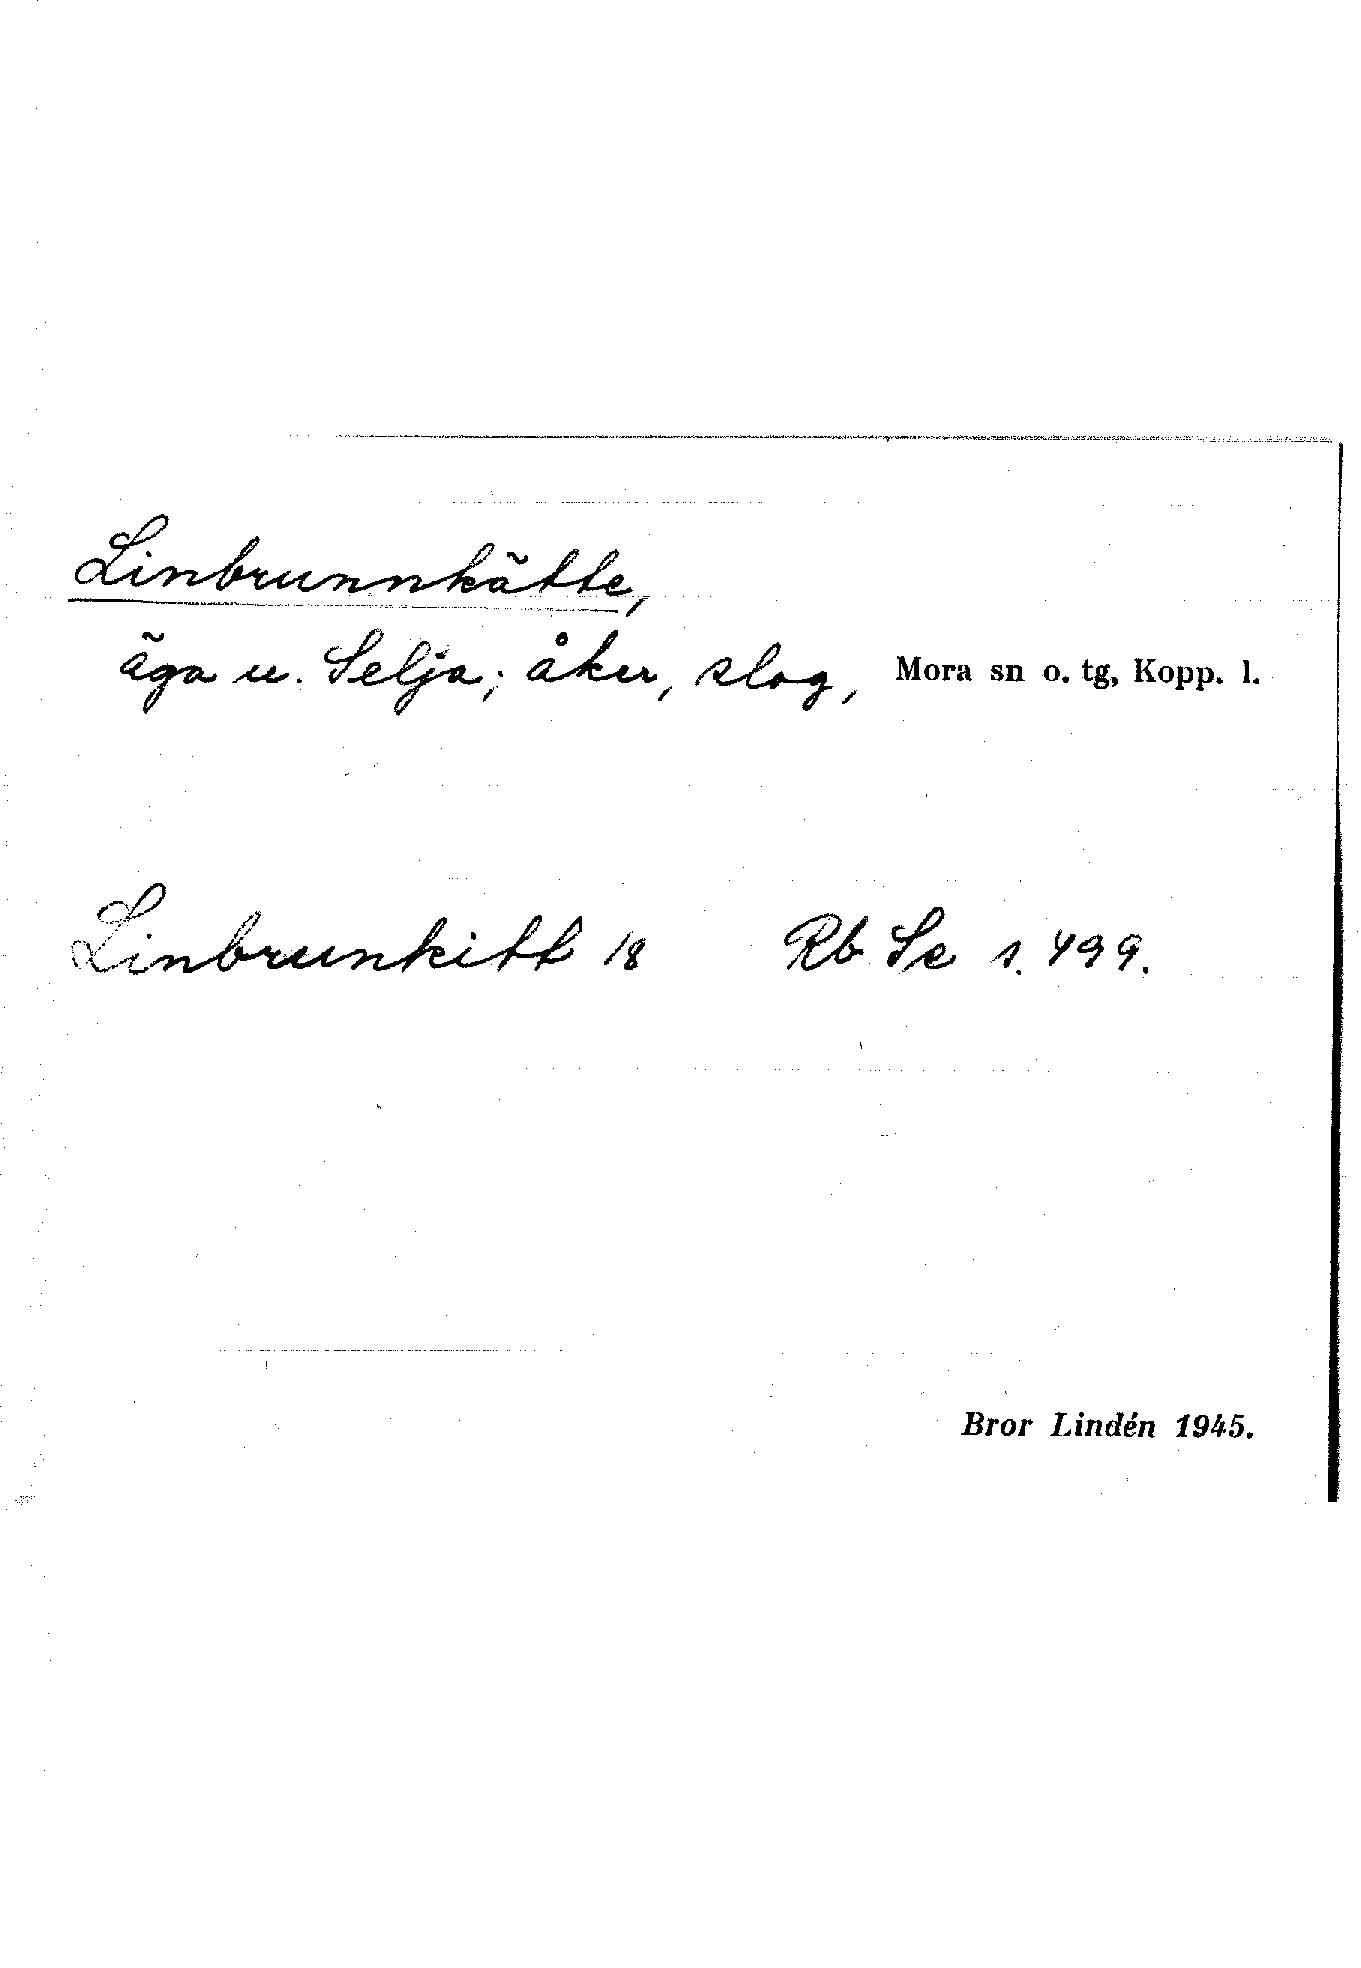 Linbrunnkätte,
äga u. Selja; åker, slog, Mora sn o. tg, Kopp. l.
Linbrunkitt 18 Rb Se s. 499.
Bror Lindén 1945.